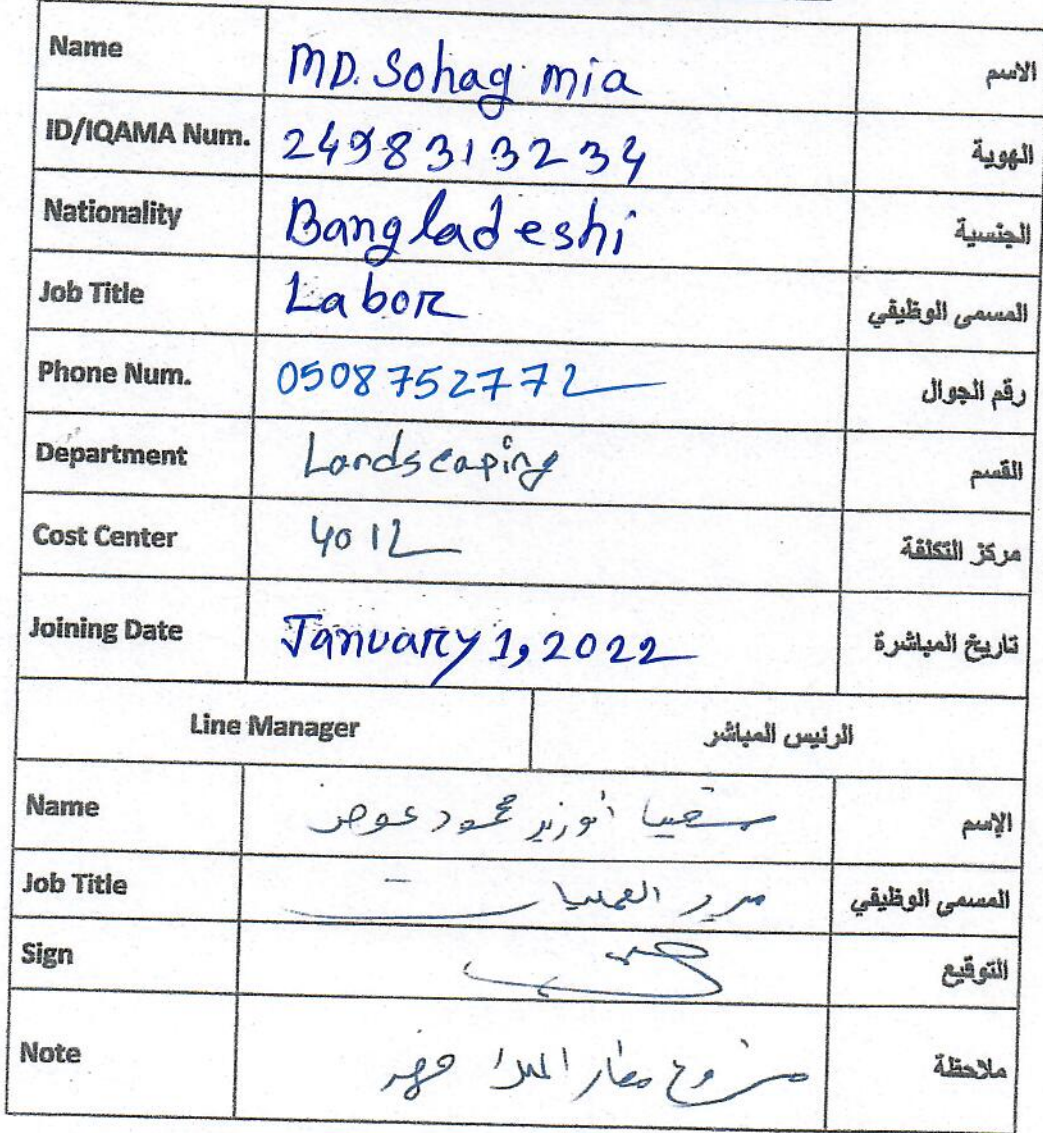 Name MD. Sohag mia الاسم
ID/IQAMA Num. 2498313234 الهوية
Nationality Bangladeshi الجنسية
Job Title Labor المسمى الوظيفي
Phone Num. 0508752772 رقم الجوال
Department Landscaping القسم
Cost Center 4012 مركز التكلفة
Joining Date January 1, 2022 تاريخ المباشرة
Line Manager الرئيس المباشر
Name أبوزيد محمود عوض الإسم
Job Title مدير العمليات المسمى الوظيفي
Sign التوقيع
Note مشروع مطار الملك فهد ملاحظة